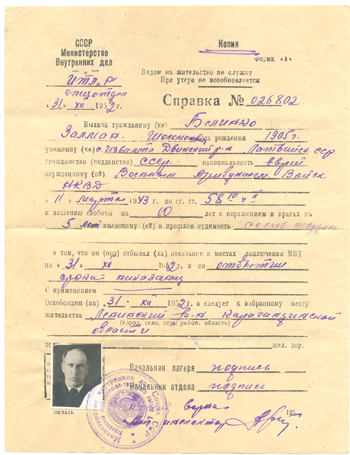 СССР
Министерство
Внутренних дел
Копия
Форма «А»
Видом на жительство не служит
При утере не возобновляется
Спецотдел
31 XII 1952 г.
Справка № 026802
Выдана гражданину (ке)
Залман рождения 1905 г.
уроженцу (ке) Двинский р-н Латвийск ССР
гражданство (подданство) СССР национальность еврей
осужденному (ой) Военным Трибуналом Войск
НКВД
11 Марта 1943 по ст. ст. 58
к лишению свободы на 10 лет с поражением в правах на
5 лет имеющему (ей) в прошлом судимость
в том, что он (она) отбывал (ла) наказание в местах заключения МВД
по 31 XII 1952 г. и по отбытии
срока наказания
С применением
Освобожден (на) 31 XII 1952 г. и следует к избранному месту
жительства Ленинский р-н Карагандинской
(город, село, дер., район, область)
области
жел. дор.
Начальник лагеря подпись
Начальник отдела подпись
печать
верно
инспектор